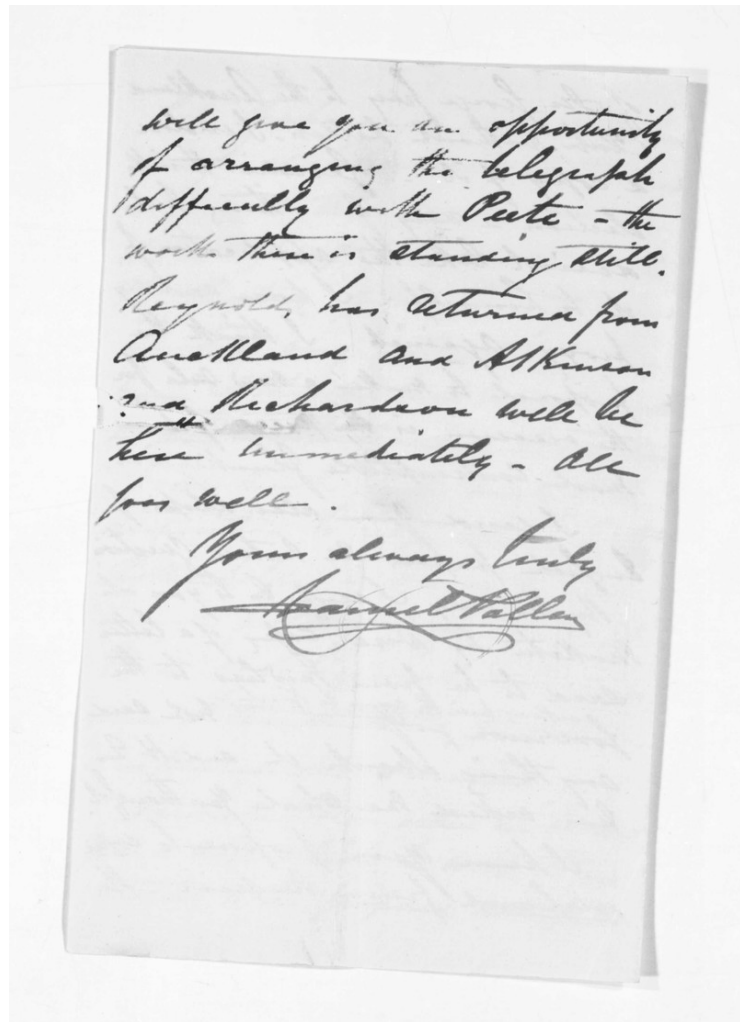 will give you an opportunity
of arranging the telegraph
difficulty with Peete - the
work there is standing still.
Reynolds, has returned from
Auckland and Atkinson
and Richardson will be
here immediately - All
goes well.
Yours always truly
Daniel Pollen